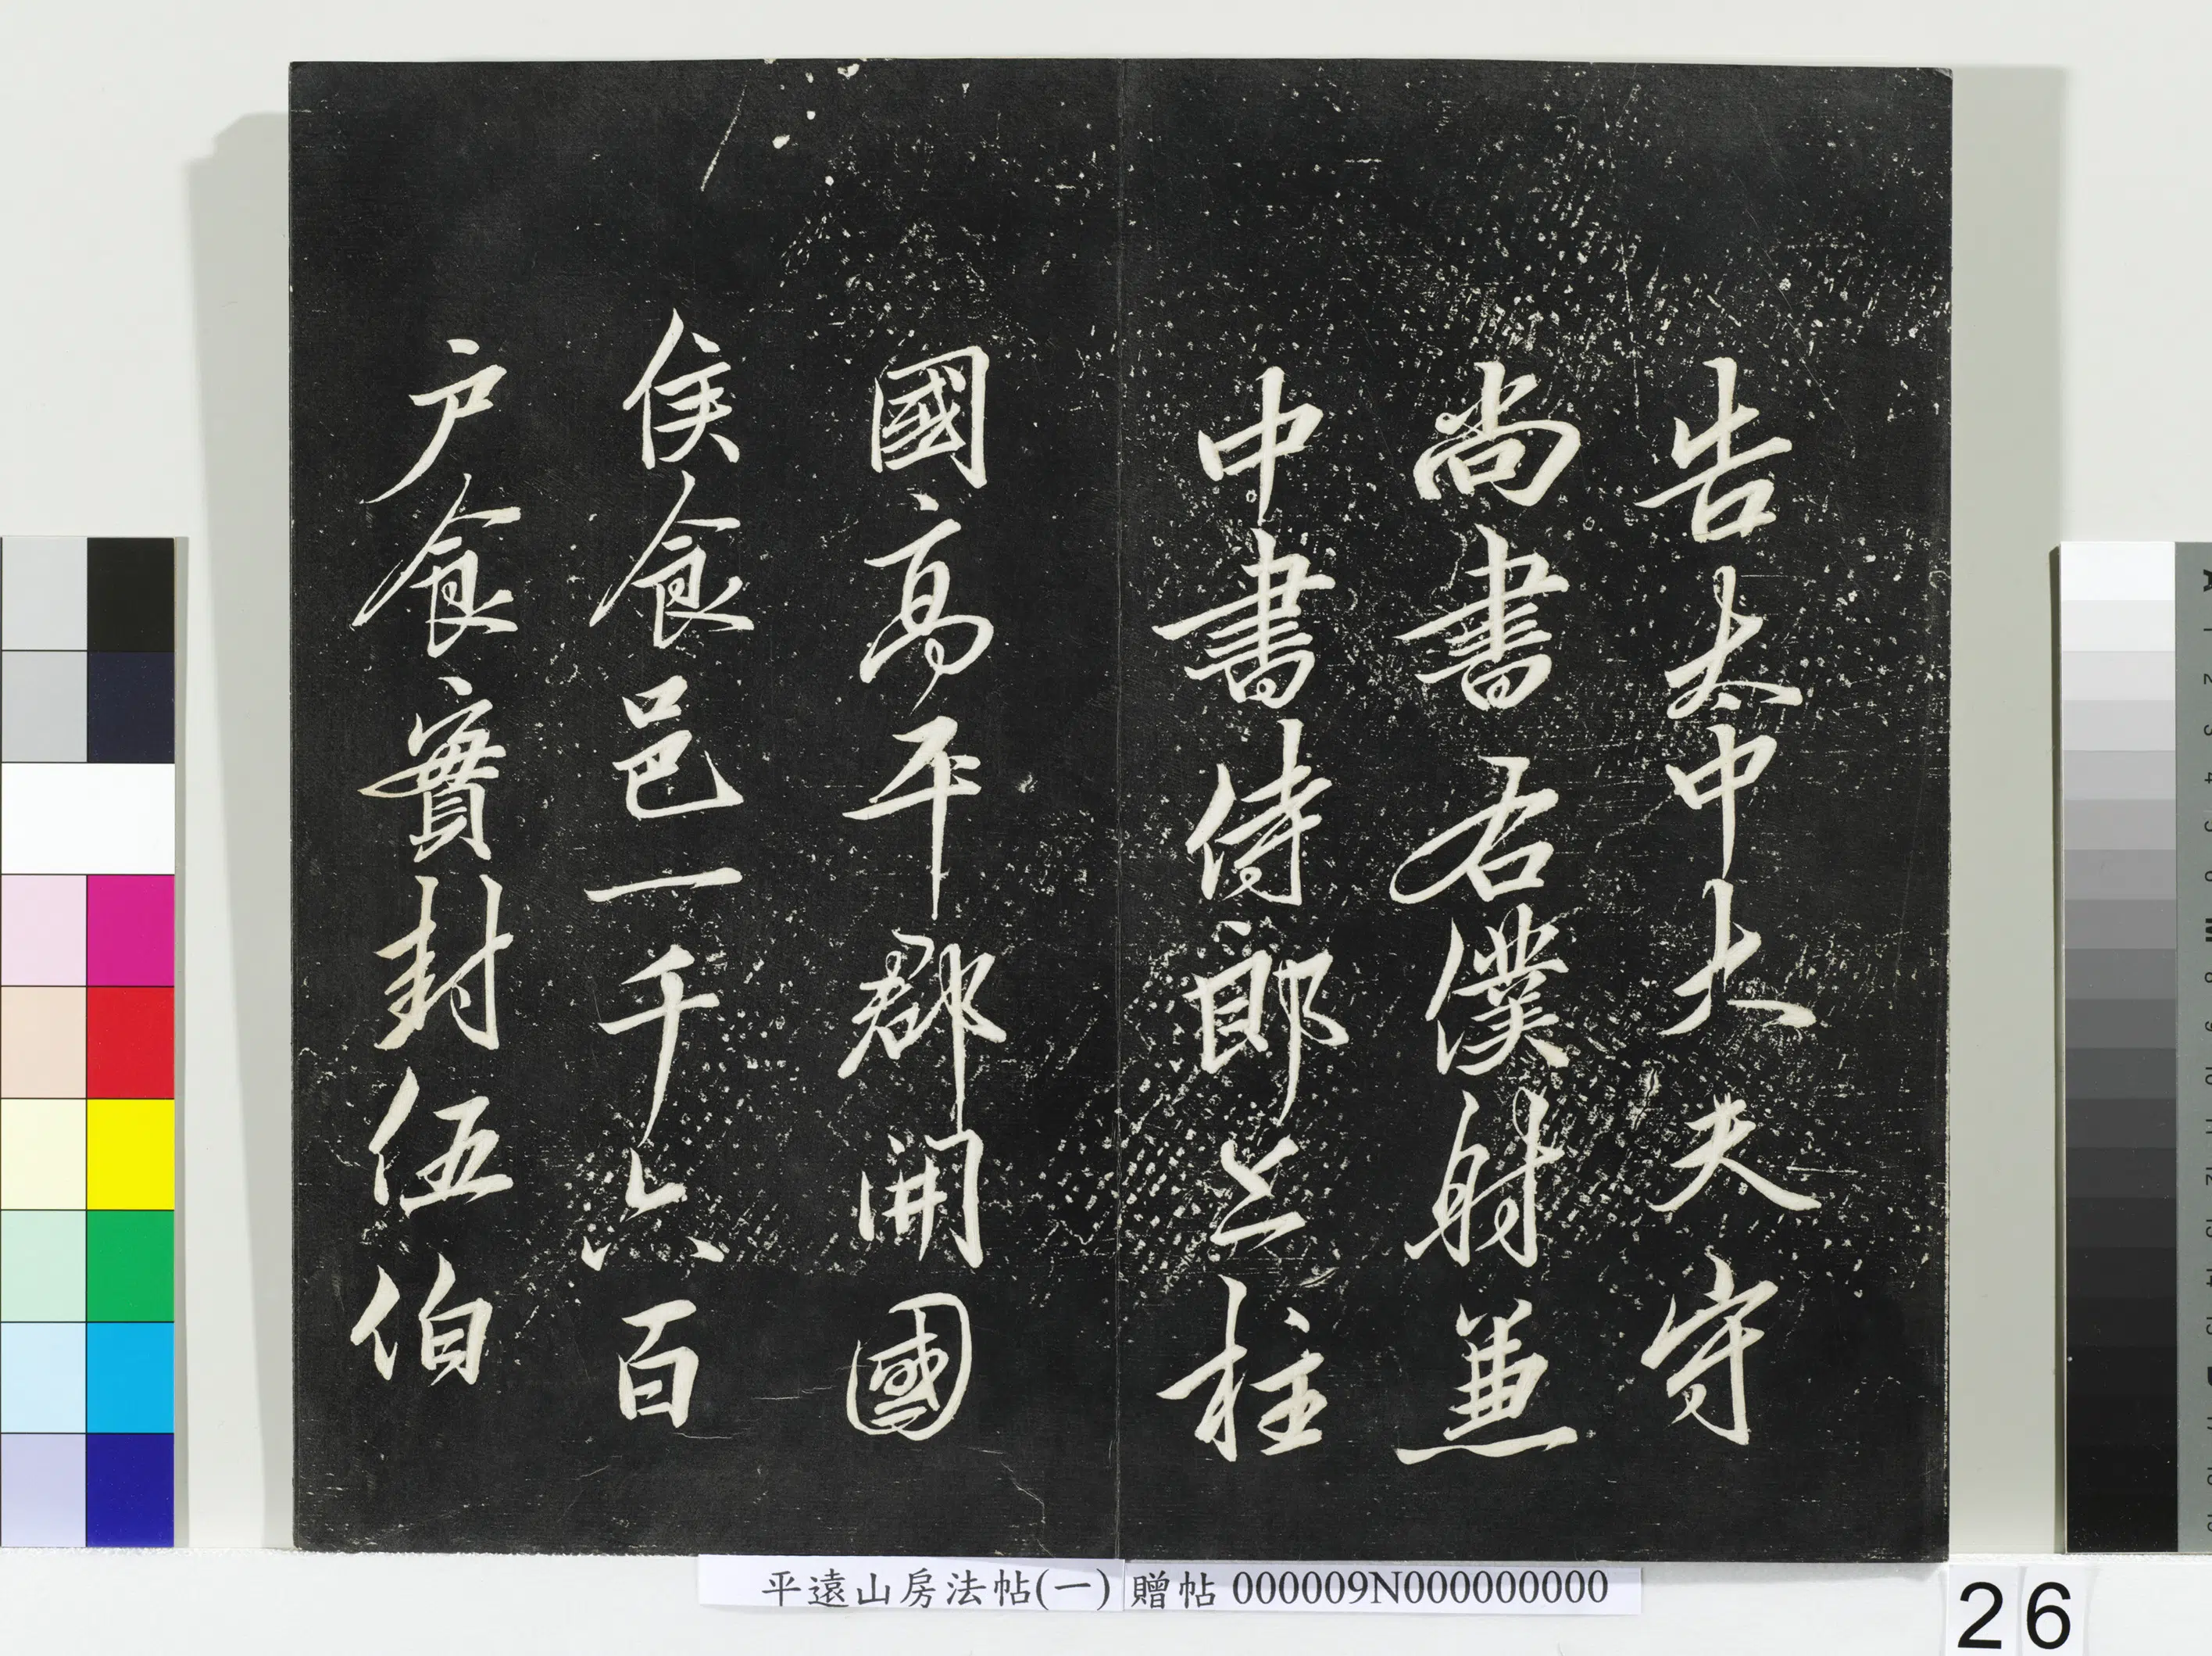 告太中大夫守
尚書右僕射兼
中書侍郎上柱
國高平郡開國
侯食邑一千六百
户食實封伍伯
平遠山房法帖(一) 贈帖 000009N000000000
26